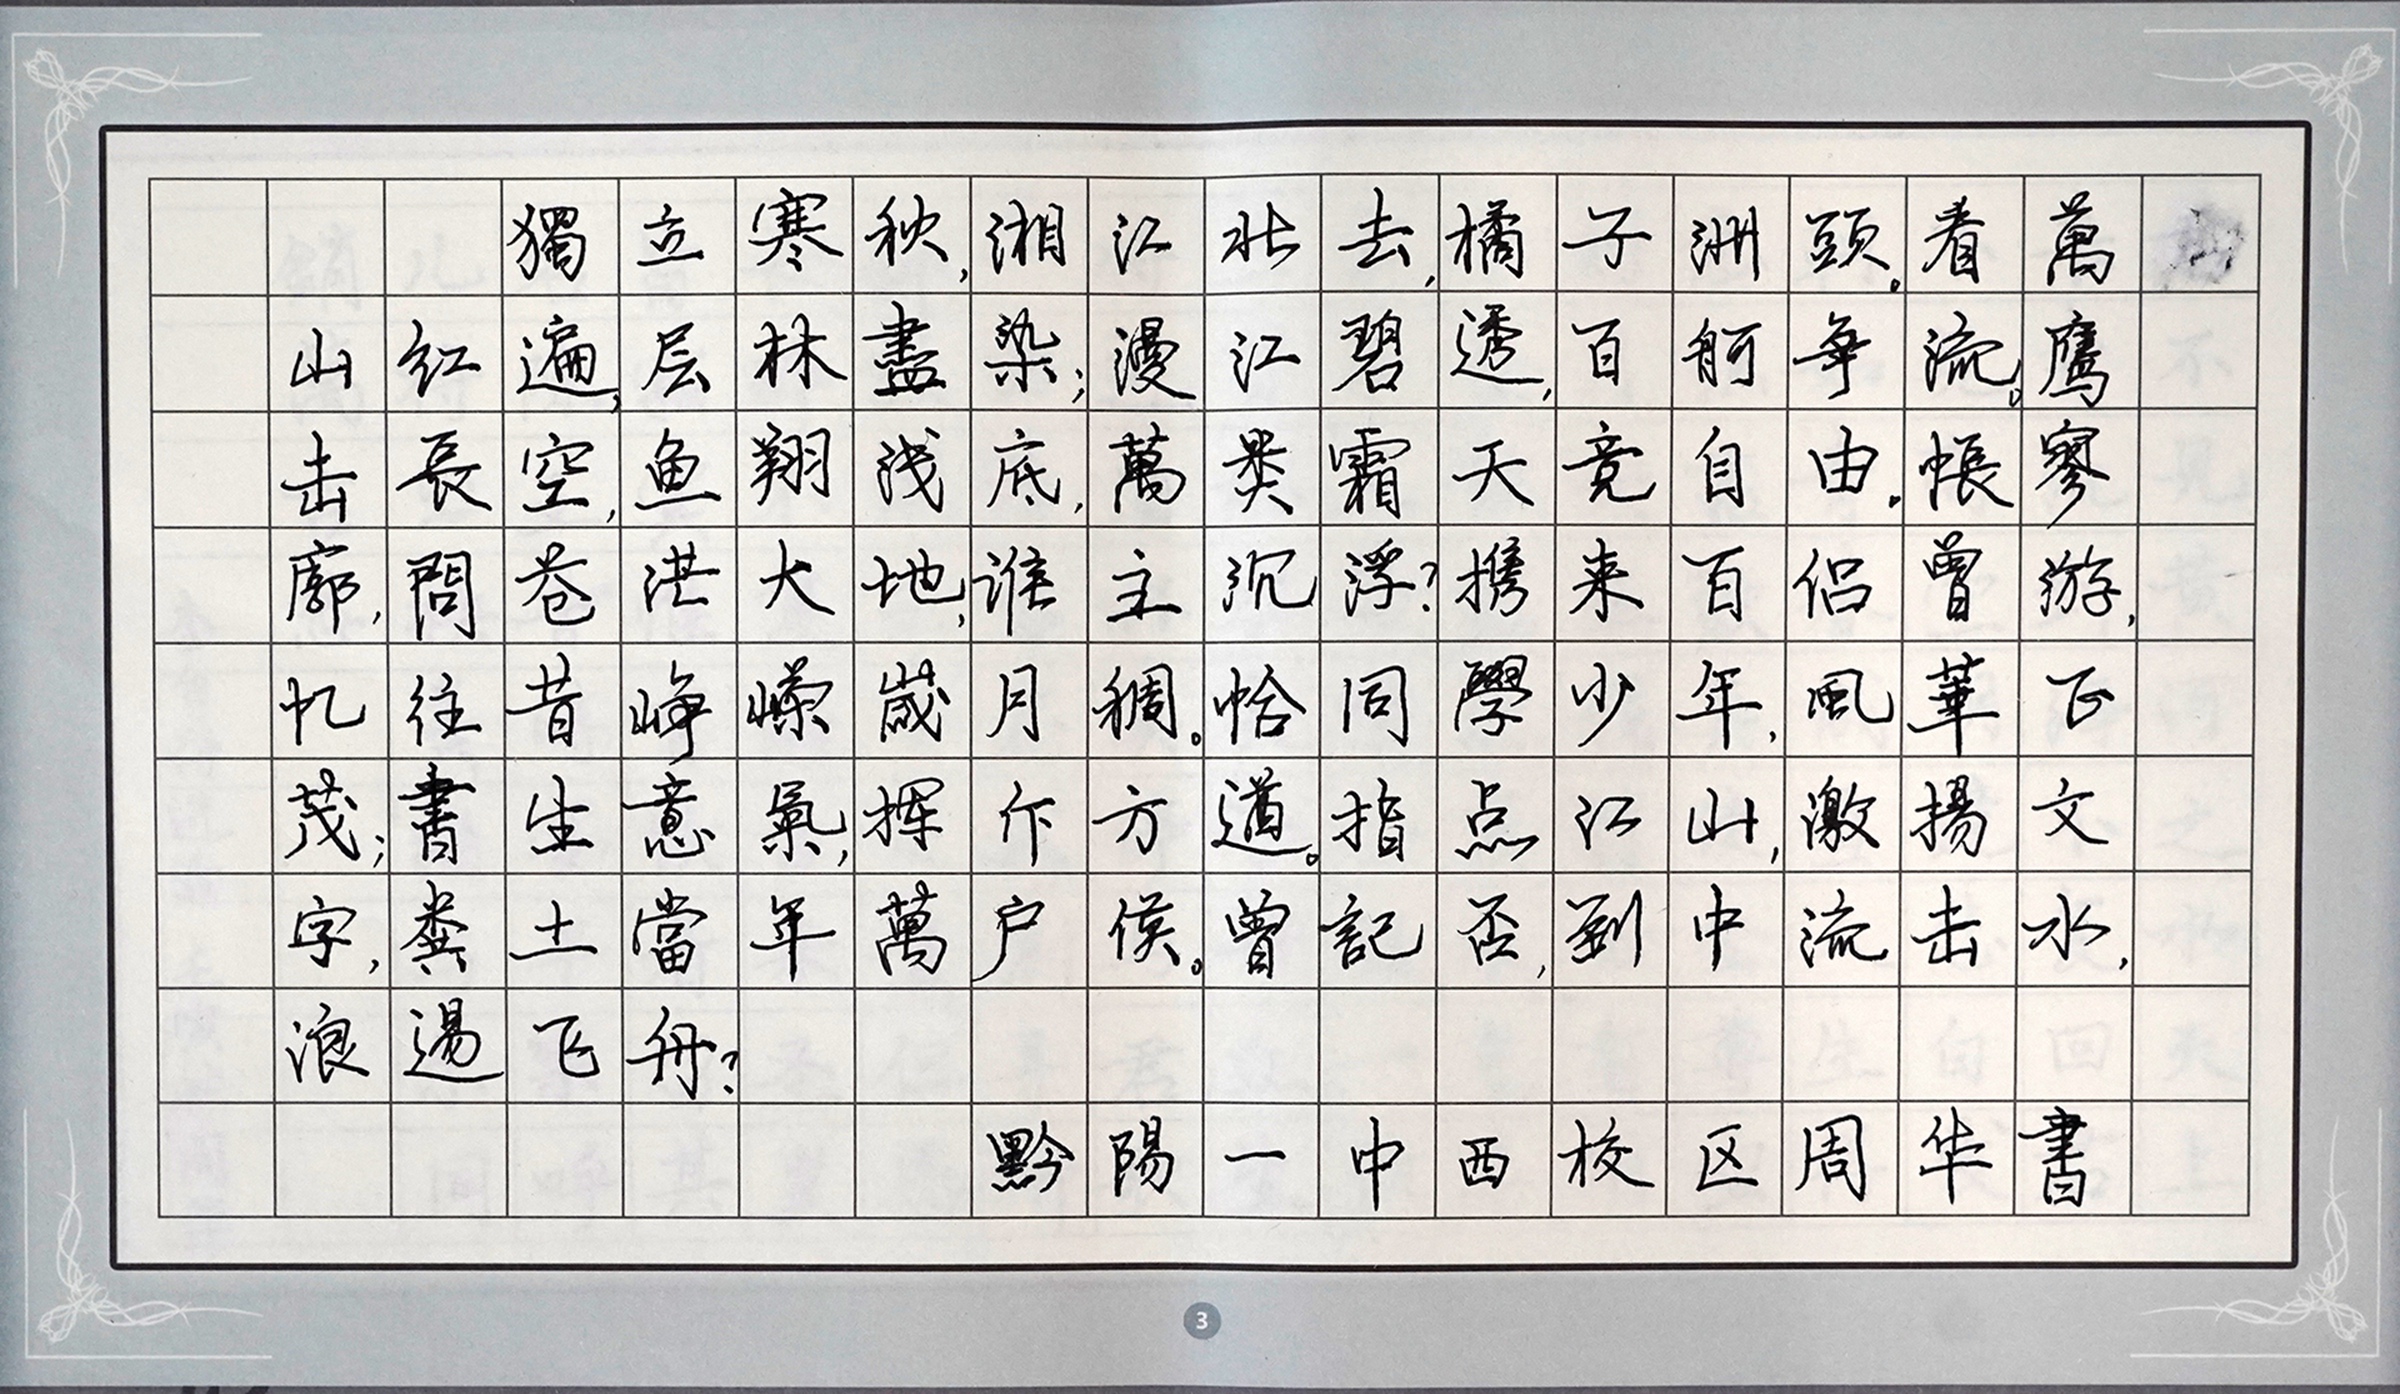 獨立寒秋,湘江北去,橘子洲頭。看萬
山红遍,层林盡染;漫江碧透,百舸争流。鹰
击長空,鱼翔浅底,萬类霜天竞自由。悵寥
廓,問苍茫大地,谁主沉浮?携来百侣曾游,
忆往昔峥嵘崴月稠。恰同學少年,風華正
茂;書生意氣,挥斥方遒。指点江山,激揚文
字,粪土當年萬户侯。曾記否,到中流击水,
浪遏飞舟?
黔陽一中西校区周华書
3